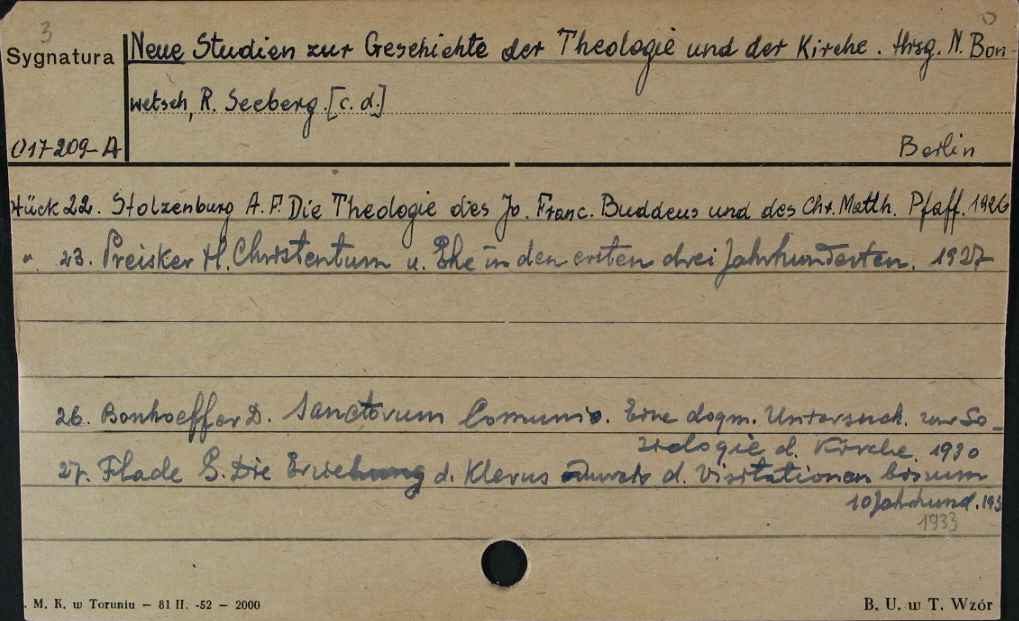 3
Sygnatura
Neue Studien zur Geschichte der Theologie und der Kirche. Hrsg. N. Bon-
wetsch, R. Seeberg. [c. d.]
017209-A
Berlin
Stück 22. Stolzenburg A. F. Die Theologie des Jo. Franc. Buddeus und des Chr. Matth. Pfaff. 1926
". 23. Preisker H. Christentum u. Ehe in den ersten drei Jahrhunderten. 1927
26. Bonhoeffer D. Sanctorum Comunio. Eine dogm. Untersuch. zur So-
ziologie d. Kirche. 1930
27. Flade G. Die Erziehung d. Klerus durch d. Visitationen bis zum
10 Jahrhund. 193
1933
. M. K. w Toruniu — 81 II. -52 — 2000
B. U. w T. Wzór